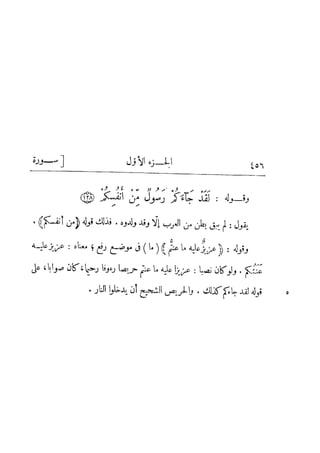 ٤٥٦ الجزء الأول [ سورة
وقوله : لَقَدْ جَاءَكُمْ رَسُولٌ مِّنْ أَنفُسِكُمْ ﴿١٢٨﴾
يقول : لم يبق بطن من العرب إلا وقد ولدوه . فذلك قوله ﴿من أنفسكم﴾ .
وقوله : ﴿عزيزٌ عليه ما عنتُّم﴾ ( ما ) فى موضع رفع ؛ معناه : عزيز عليه
عَنَتُكم . ولو كان نصبا : عزيزا عليه ما عنتم حريصا رءوفا رحيما ، كان صوابا ، على
٥ قوله لقد جاءكم كذلك . والحريص الشحيح أن يدخلوا النار .